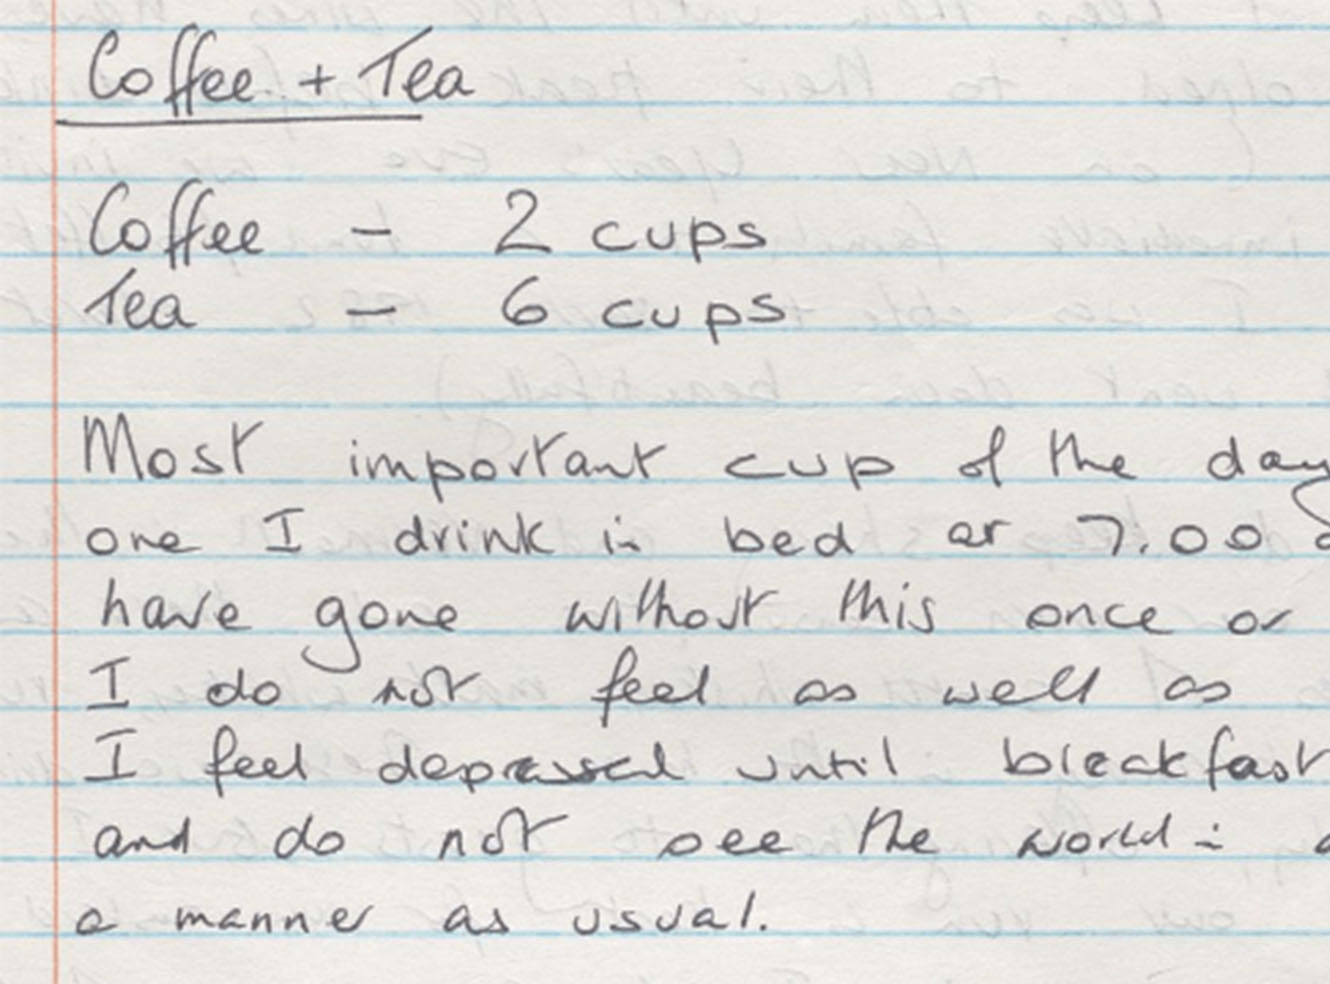 Coffee + Tea
Coffee - 2 cups
Tea - 6 cups
Most important cup of the day
one I drink in bed at 7.00
have gone without this once or
I do not feel as well as
I feel depressed until breakfast
and do not see the world in
a manner as usual.